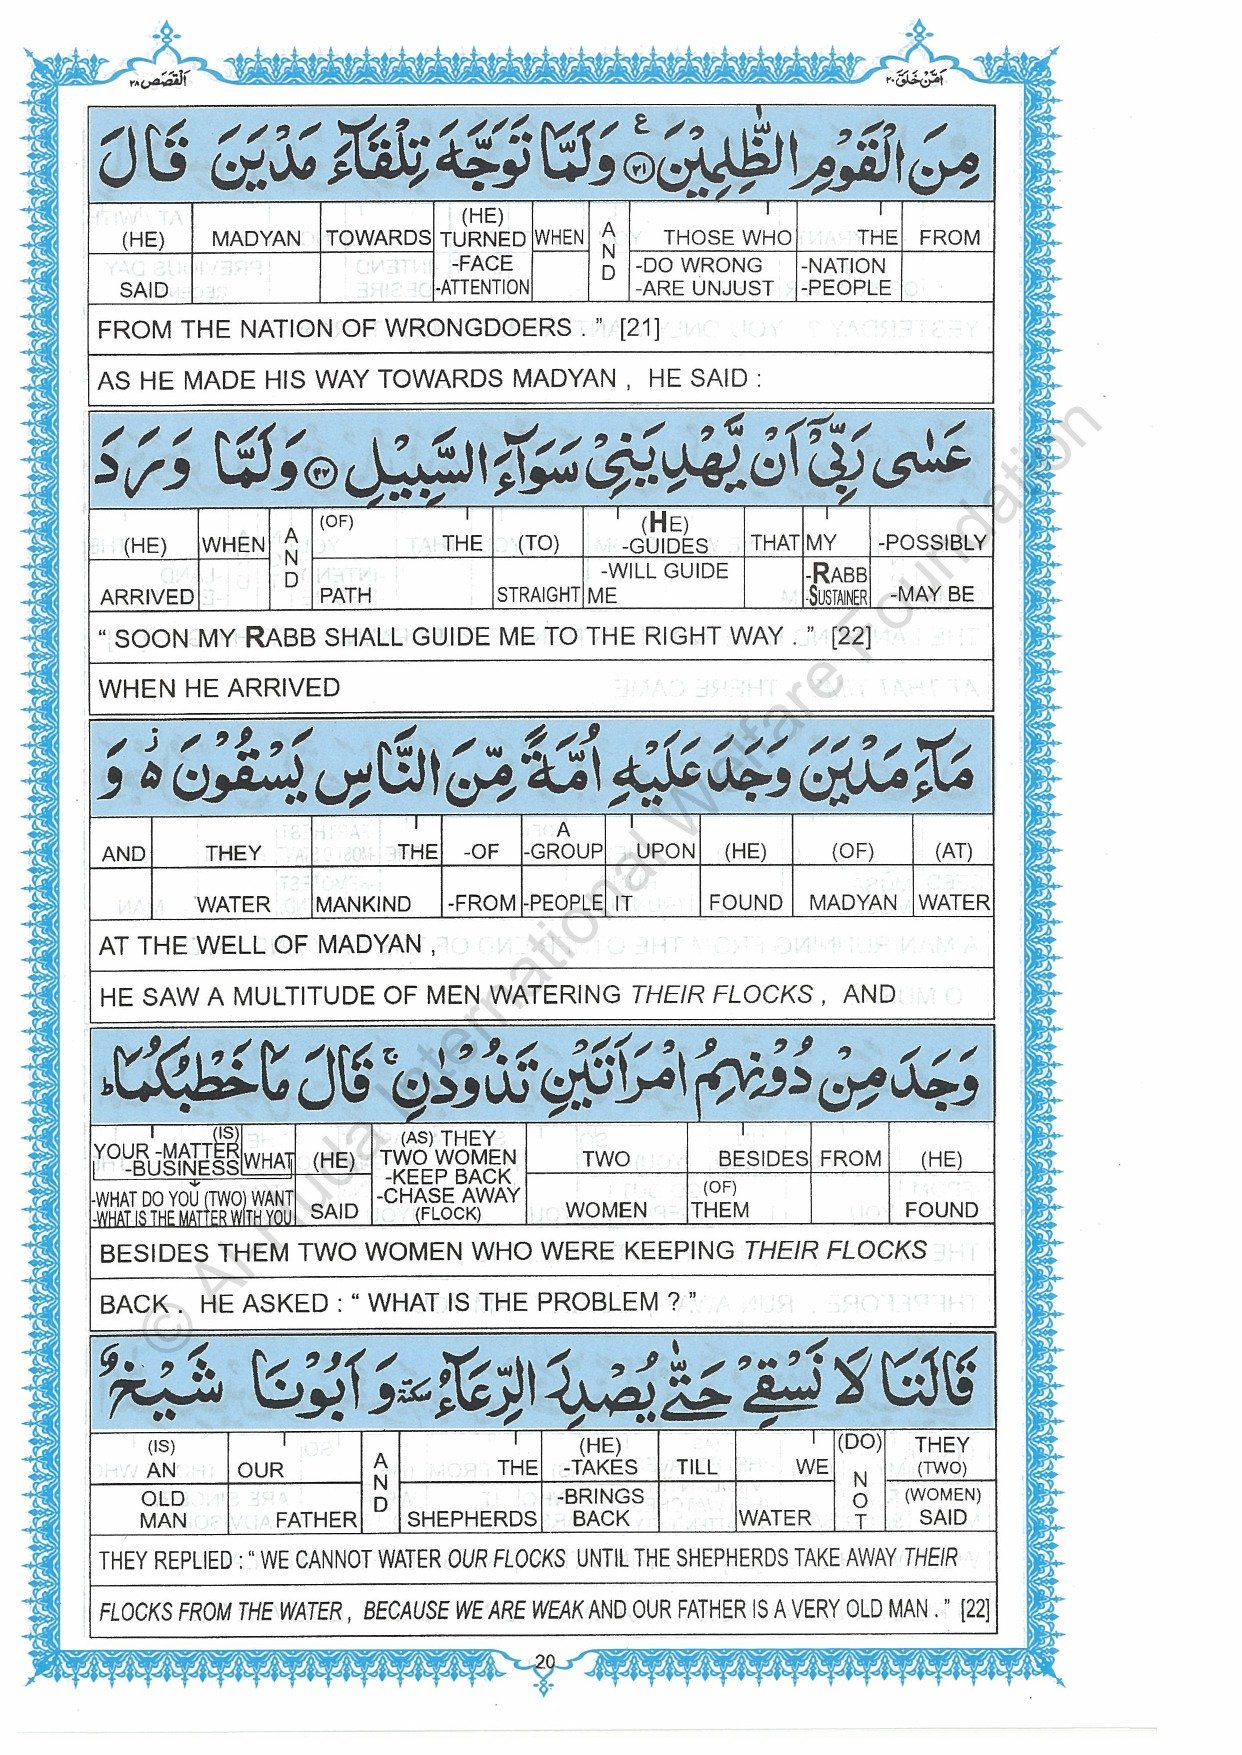 اَلْقَصَص ٢٨
اَمَّنْ خَلَقَ ٢٠
مِنَ الْقَوْمِ الظّٰلِمِيْنَ ﴿٢١﴾ ع وَلَمَّا تَوَجَّهَ تِلْقَآءَ مَدْيَنَ قَالَ
(HE) MADYAN TOWARDS (HE) TURNED WHEN AND THOSE WHO THE FROM
SAID -FACE -ATTENTION -DO WRONG -ARE UNJUST -NATION -PEOPLE
FROM THE NATION OF WRONGDOERS . ” [21]
AS HE MADE HIS WAY TOWARDS MADYAN , HE SAID :
عَسٰى رَبِّيْٓ اَنْ يَّهْدِيَنِيْ سَوَآءَ السَّبِيْلِ ﴿٢٢﴾ وَلَمَّا وَرَدَ
(HE) WHEN AND (OF) THE (TO) (HE) -GUIDES THAT MY -POSSIBLY
ARRIVED PATH STRAIGHT -WILL GUIDE ME -RABB -SUSTAINER -MAY BE
“ SOON MY RABB SHALL GUIDE ME TO THE RIGHT WAY . ” [22]
WHEN HE ARRIVED
مَآءَ مَدْيَنَ وَجَدَ عَلَيْهِ اُمَّةً مِّنَ النَّاسِ يَسْقُوْنَ ۬ە وَ
AND THEY THE -OF A -GROUP UPON (HE) (OF) (AT)
WATER MANKIND -FROM -PEOPLE IT FOUND MADYAN WATER
AT THE WELL OF MADYAN ,
HE SAW A MULTITUDE OF MEN WATERING THEIR FLOCKS , AND
وَجَدَ مِنْ دُوْنِهِمُ امْرَاَتَيْنِ تَذُوْدٰنِ ۚ قَالَ مَا خَطْبُكُمَا ؕ
YOUR -MATTER (IS) -BUSINESS WHAT (HE) (AS) THEY TWO WOMEN -KEEP BACK -CHASE AWAY (FLOCK) TWO BESIDES FROM (HE)
-WHAT DO YOU (TWO) WANT -WHAT IS THE MATTER WITH YOU SAID WOMEN (OF) THEM FOUND
BESIDES THEM TWO WOMEN WHO WERE KEEPING THEIR FLOCKS
BACK . HE ASKED : “ WHAT IS THE PROBLEM ? ”
قَالَتَا لَا نَسْقِيْ حَتّٰى يُصْدِرَ الرِّعَآءُ سكتة وَ اَبُوْنَا شَيْخٌ
(IS) AN OUR AND THE (HE) -TAKES TILL WE (DO) NOT THEY (TWO)
OLD MAN FATHER SHEPHERDS -BRINGS BACK WATER (WOMEN) SAID
THEY REPLIED : “ WE CANNOT WATER OUR FLOCKS UNTIL THE SHEPHERDS TAKE AWAY THEIR
FLOCKS FROM THE WATER , BECAUSE WE ARE WEAK AND OUR FATHER IS A VERY OLD MAN . ” [22]
20
© Al Huda International Welfare Foundation